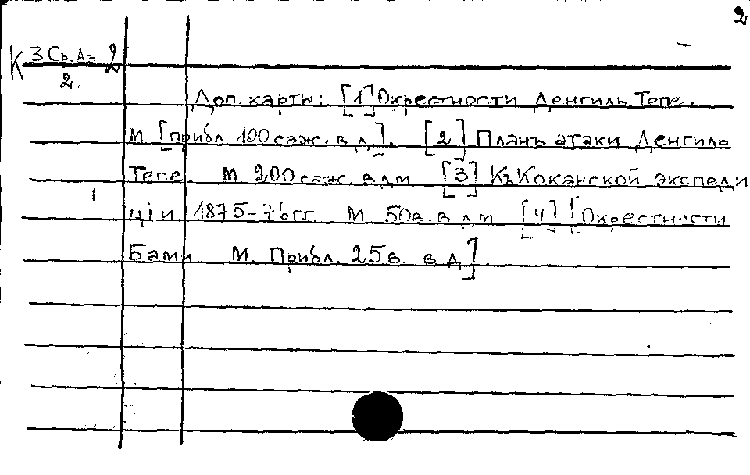 2
К 3 Св. А= 2
2.
Доп. карты: [1] Окрестности Денгиль Тепе.
М [прибл 100 саж. в д]. [2] Планъ атаки Денгиль
Тепе М 200 саж. в дм [3] Къ Коканской экспеди
ціи 1875-76 гг. М 50 в. в дм [4] [Окрестности
Бами М. Прибл. 25 в. в д]